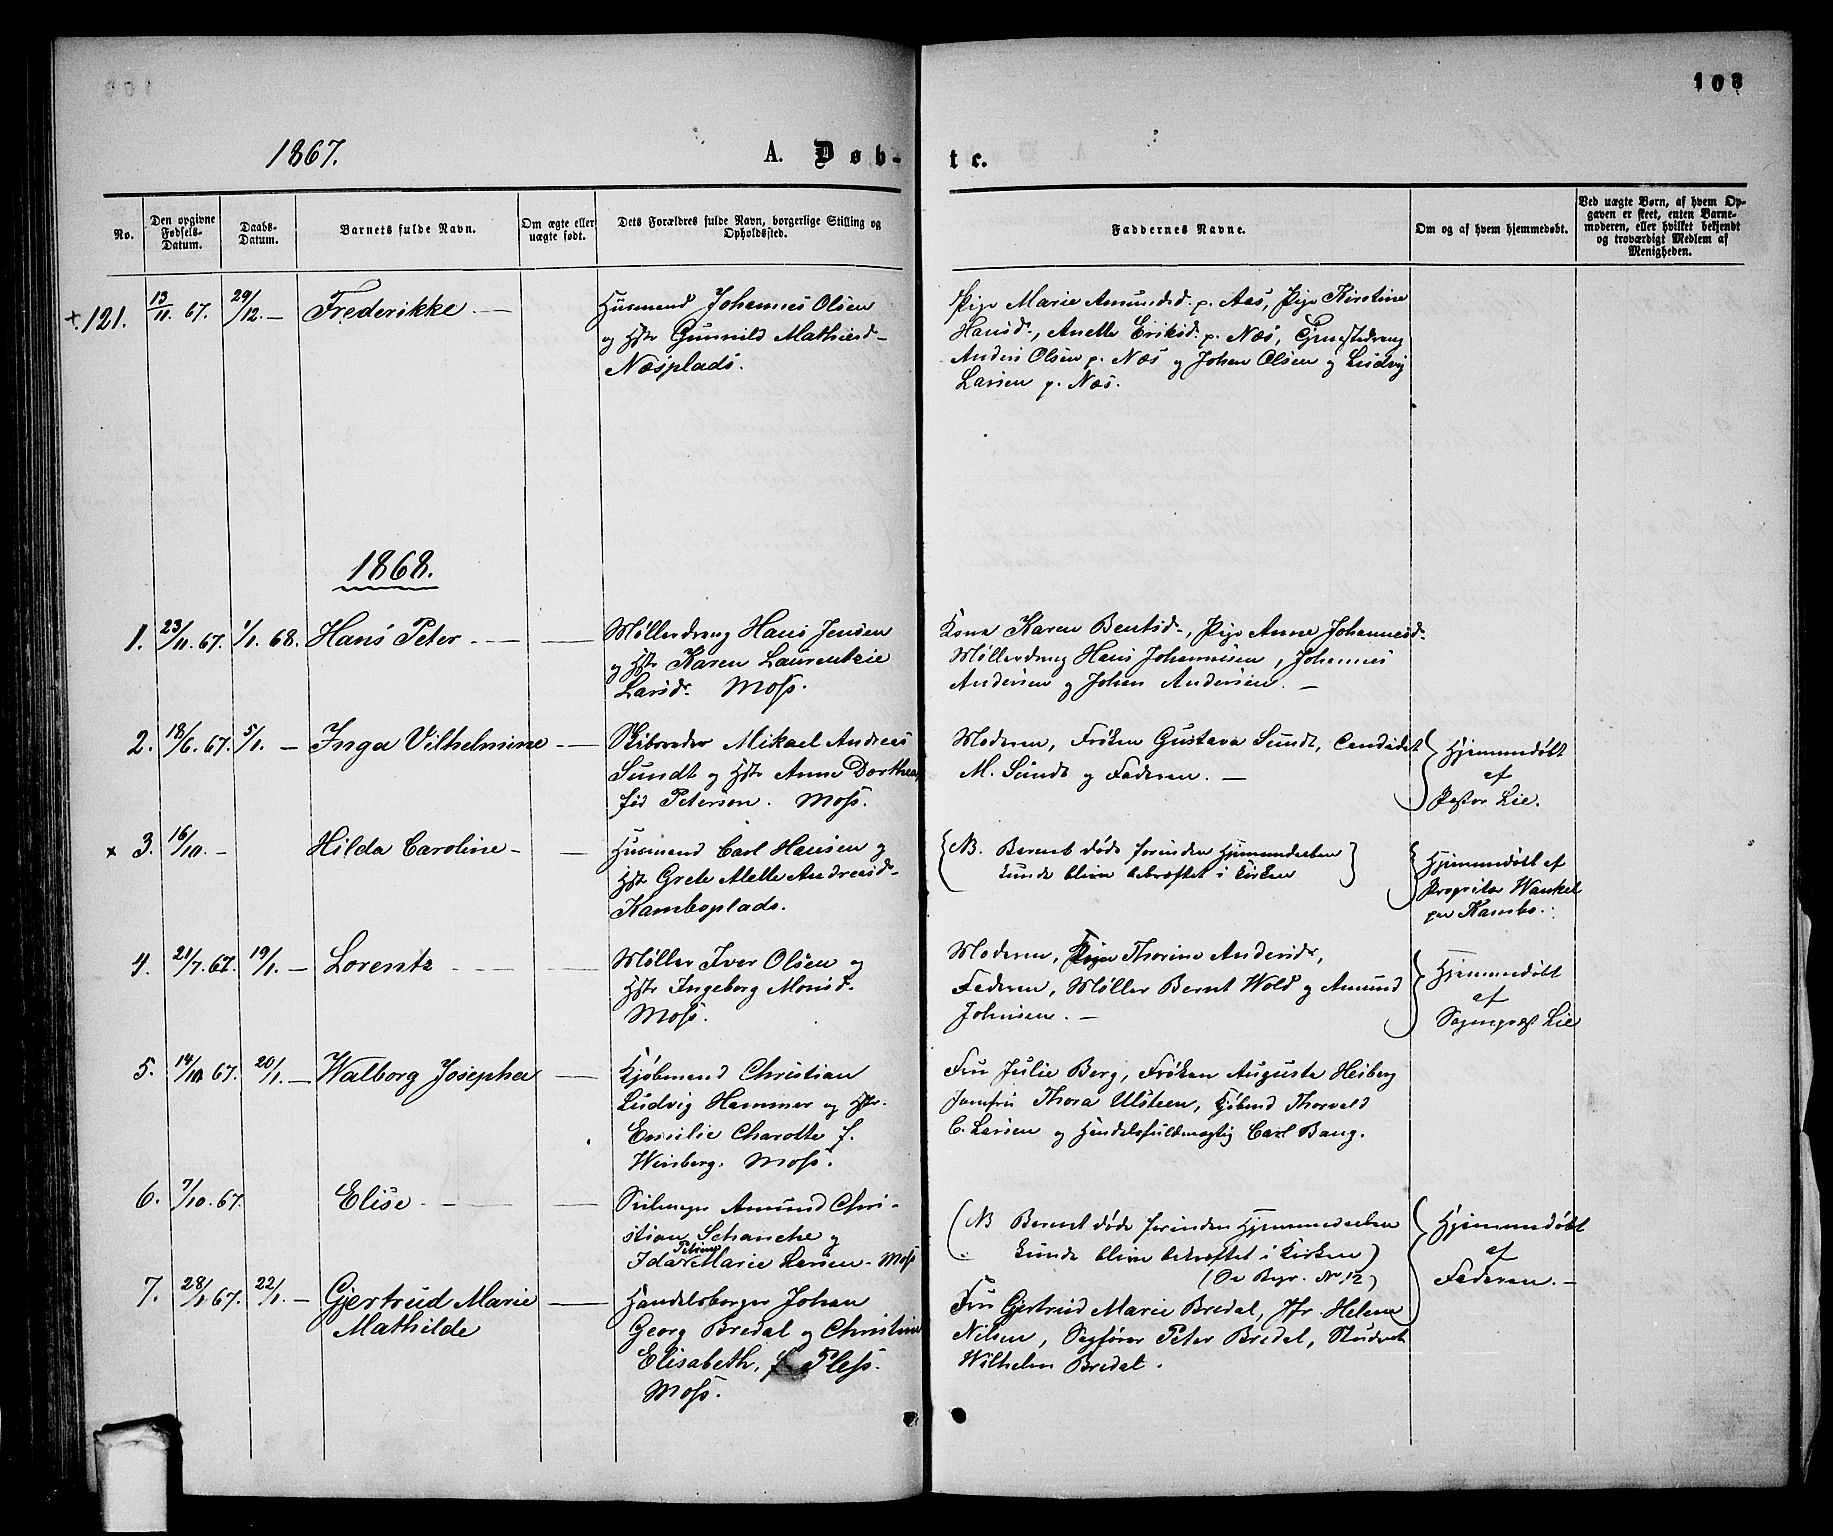 108
1867.
A. Døb-
te.
No.
Den opgivne Fødsels-Datum.
Daabs-Datum.
Barnets fulde Navn.
Om ægte eller uægte født.
Dets Forældres fulde Navn, borgerlige Stilling og Opholdssted.
Faddernes Navne.
Om og af hvem hjemmedøbt.
Ved uægte Børn, af hvem Opgaven er skeet, enten Barnemoderen, eller hvilket bekjendt og troværdigt Medlem af Menigheden.
+ 121. 13/11. 67. 29/12. — Frederikke —
Husmand Johannes Olsen
og Hstr Gunnild Mathisd.
Næsplads.
Pige Marie Amundsd. p. Aas, Pige Kirstine
Hansd., Anette Eriksd. p. Næs,
Anders Olsen p. Næs og Johan Olsen og Ludvig
Larsen p. Næs.
1868.
1. 23/11. 67. 1/1. 68. Hans Peter. — —
Møllerdreng Hans Jensen
og Hstr Karen Laurentzie
Larsd. Moss.
Kone Karen Bentsd., Pige Anne Johannesd.
Møllerdreng Hans Johannesen, Johannes
Andersen og Johan Andersen. —
2. 18/6. 67. 5/1. — Inga Vilhelmine —
Skibsreder Mikael Andreas
Sundt og Hstr Anne Dorthea,
fød Peterson. Moss.
Moderen, Frøken Gustava Sundt, Candidat
M. Sundt og Faderen. —
Hjemmedøbt
af
Pastor Lie.
x 3. 16/10. — Hilda Caroline — —
Husmand Carl Hansen og
Hstr Grete Mette Andreasd.
Kamboplads.
NB. Barnet døde forinden Hjemmedaaben
kunde blive bekræftet i Kirken
Hjemmedøbt af
Propritær Wankel
paa Kambo.
4. 21/7. 67. 19/1. — Lorentz — —
Møller Iver Olsen og
Hstr Ingeborg Monsd.
Moss.
Moderen, Pige Thorine Andersd.,
Faderen, Møller Bernt Wold og Amund
Johnsen. —
Hjemmedøbt
af
Sogneprest Lie
5. 14/10. 67. 20/1. — Walborg Josepha —
Kjøbmand Christian
Ludvig Hammer og Hstr.
Emilie Charotte f.
Winsberg. Moss.
Fru Julie Berg, Frøken Augusta Heiberg
Jomfru Thora Ulsteen, Kjøbmd Thorvald
C. Larsen og Handelsfuldmægtig Carl Bang.
6. 7/10. 67. Elise. — —
Seilmager Amund Chri-
stian Schanche og
Ida Petrine Marie Larsen. Moss
(NB Barnet døde forinden Hjemmedaaben
kunde blive bekræftet i Kirken)
Hjemmedøbt
af
Faderen. —
7. 28/1. 67. 22/1. — Gjertrud Marie
Mathilde
Handelsborger Johan
Georg Bredal og Christine
Elisabeth, f. Pless.
Moss.
Fru Gjertrud Marie Bredal, Jfr. Helene
Nilsen, Sagfører Peter Bredal, Student
Wilhelm Bredal.